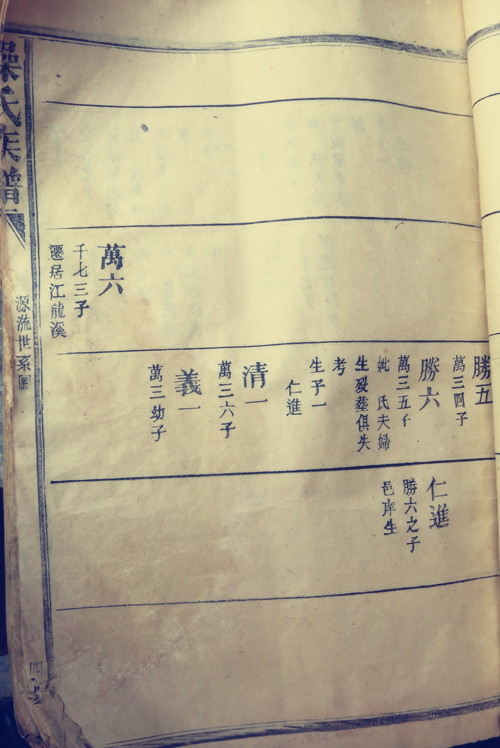 勝五
萬三四子
勝六
萬三五子
妣 氏夫婦
生殁塟俱失
考
生子一
仁進
清一
萬三六子
義一
萬三幼子
仁進
勝六之子
邑庠生
萬六
千七三子
遷居江龍溪
氏族譜
源流世系圖
四